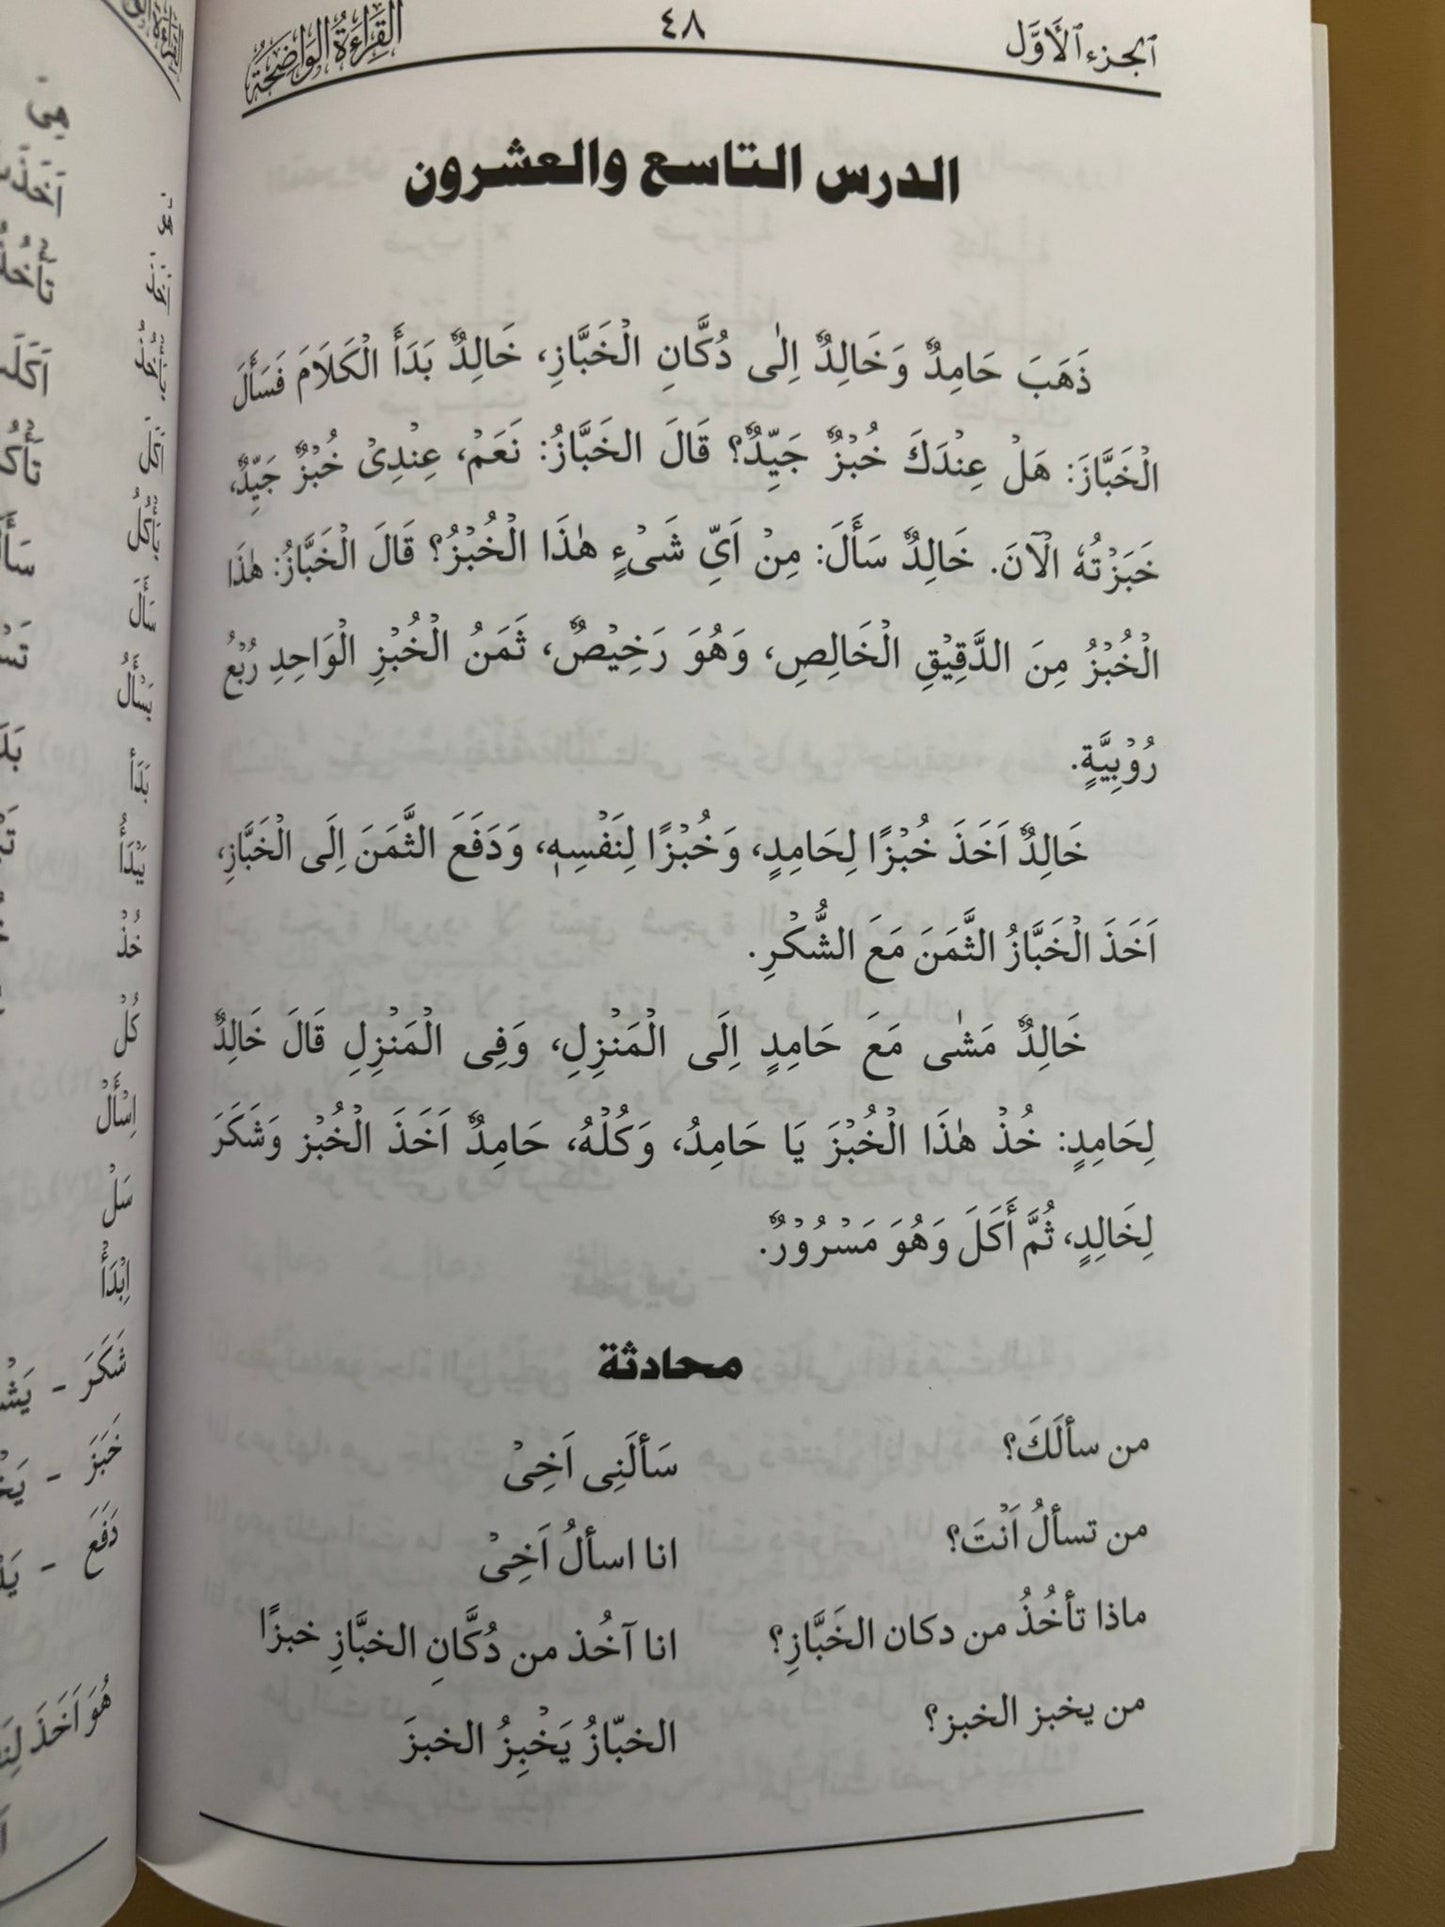 الجزء الأَوَّل
٤٨
القِرَاءَةُ الوَاضِحَةُ
الدرس التاسع والعشرون
ذَهَبَ حَامِدٌ وَخَالِدٌ اِلٰى دُكَّانِ الْخَبَّازِ، خَالِدٌ بَدَأَ الْكَلَامَ فَسَأَلَ
الْخَبَّازَ: هَلْ عِنْدَكَ خُبْزٌ جَيِّدٌ؟ قَالَ الخَبَّازُ: نَعَمْ، عِنْدِىْ خُبْزٌ جَيِّدٌ،
خَبَزْتُهٗ الْآنَ. خَالِدٌ سَأَلَ: مِنْ اَيِّ شَىْءٍ هٰذَا الْخُبْزُ؟ قَالَ الْخَبَّازُ: هٰذَا
الْخُبْزُ مِنَ الدَّقِيْقِ الْخَالِصِ، وَهُوَ رَخِيْصٌ، ثَمَنُ الْخُبْزِ الْوَاحِدِ رُبْعُ
رُوْبِيَّةٍ.
خَالِدٌ اَخَذَ خُبْزًا لِحَامِدٍ، وَخُبْزًا لِنَفْسِهٖ، وَدَفَعَ الثَّمَنَ اِلَى الْخَبَّازِ،
اَخَذَ الْخَبَّازُ الثَّمَنَ مَعَ الشُّكْرِ.
خَالِدٌ مَشٰى مَعَ حَامِدٍ اِلَى الْمَنْزِلِ، وَفِى الْمَنْزِلِ قَالَ خَالِدٌ
لِحَامِدٍ: خُذْ هٰذَا الْخُبْزَ يَا حَامِدُ، وَكُلْهُ، حَامِدٌ اَخَذَ الْخُبْز وَشَكَرَ
لِخَالِدٍ، ثُمَّ أَكَلَ وَهُوَ مَسْرُوْرٌ.
محادثة
من سألَكَ؟ سَألَنِى اَخِىْ
من تسألُ اَنْتَ؟ انا اسألُ اَخِىْ
ماذا تأخُذُ من دكان الخَبَّازِ؟ انا آخُذ من دُكَّانِ الخبَّازِ خبزًا
من يخبز الخبز؟ الخبّازُ يَخْبِزُ الخبزَ
اَكَلَ
يَأْكُلُ
سَأَلَ
يَسْأَلُ
بَدَأَ
يَبْدَأُ
خُذْ
كُلْ
اِسْأَلْ
سَلْ
اِبْدَأْ
شَكَرَ –
خَبَزَ –
دَفَعَ –
هُوَ اَخَذَ